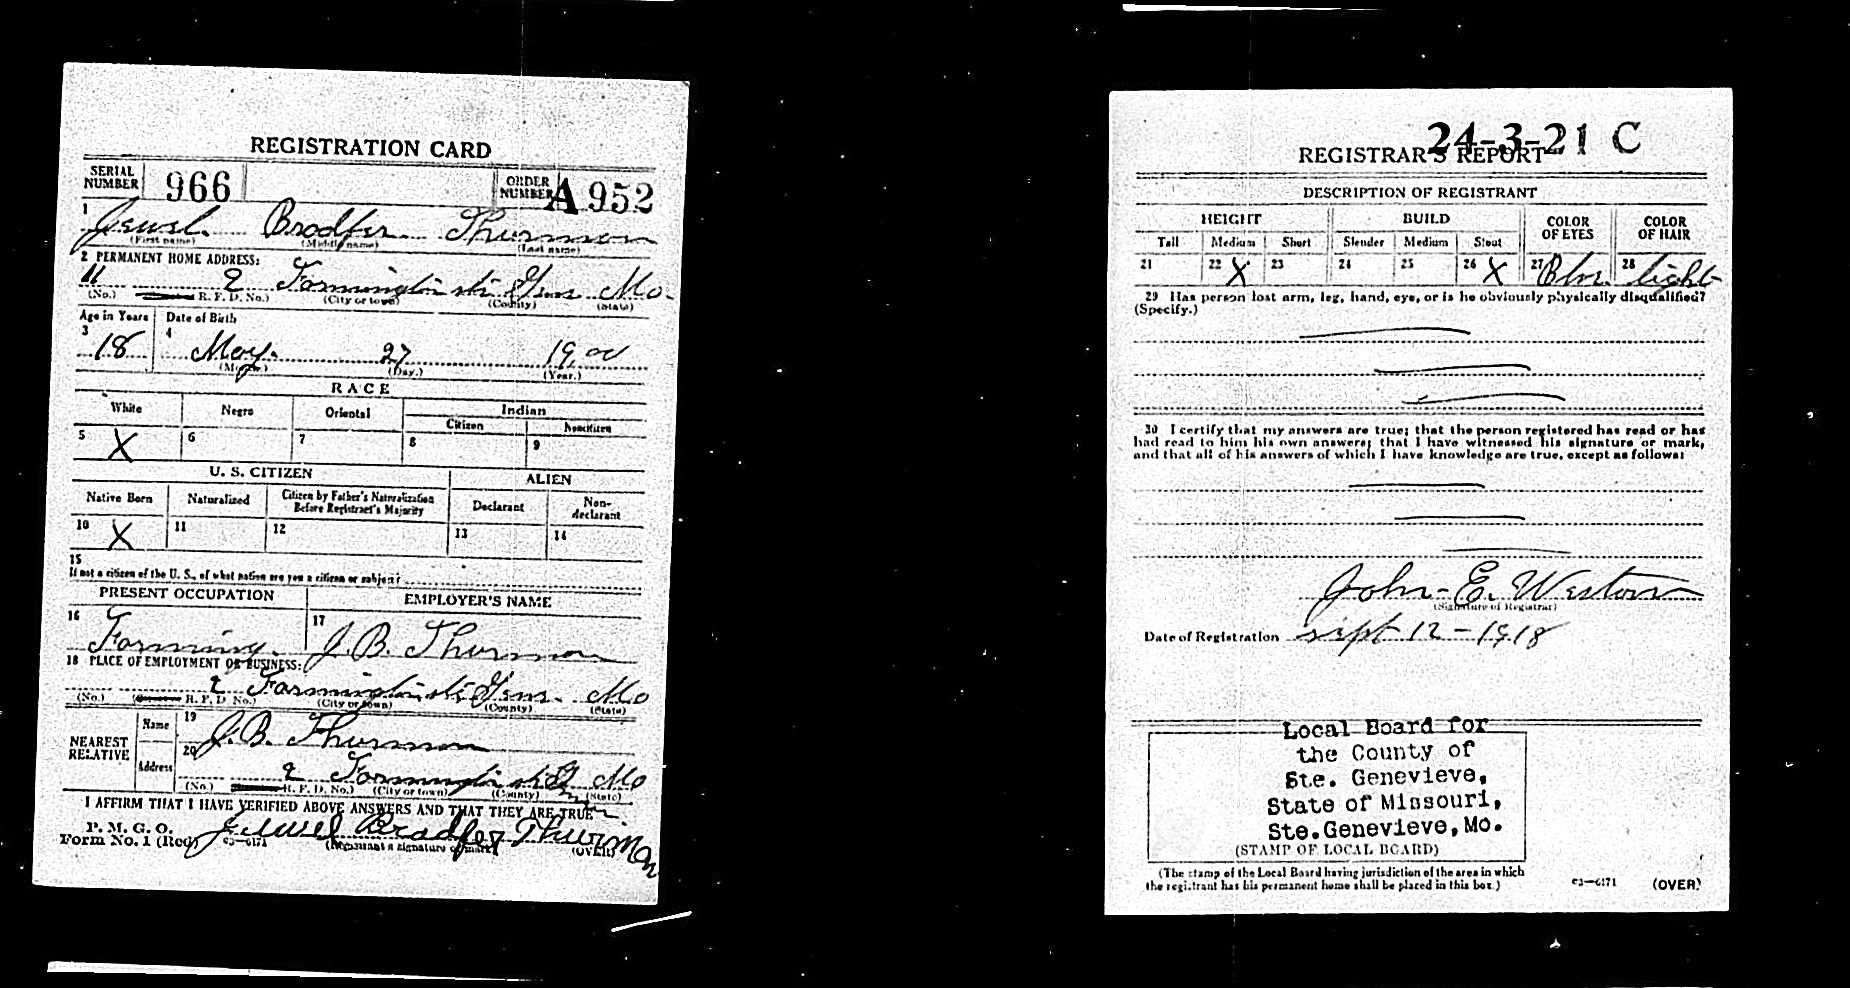 REGISTRATION CARD
SERIAL NUMBER 966 ORDER NUMBER A 952
1 Jewel Bradfer Thurman
(First name) (Middle name) (Last name)
2 PERMANENT HOME ADDRESS:
2 Farmington Ste Gen Mo.
(No.) R. F. D. No.) (City or town) (County) (State)
Age in Years Date of Birth
3 18 4 May 27 1900
(Month) (Day.) (Year.)
RACE
White Negro Oriental Indian
Citizen Noncitizen
5 X 6 7 8 9
U. S. CITIZEN ALIEN
Native Born Naturalized Citizen by Father's Naturalization Before Registrant's Majority Declarant Non-declarant
10 X 11 12 13 14
15
If not a citizen of the U. S., of what nation are you a citizen or subject?
PRESENT OCCUPATION EMPLOYER'S NAME
16 Farming 17 J. B. Thurman
18 PLACE OF EMPLOYMENT OR BUSINESS:
2 Farmington Ste Gen. Mo
(No.) R. F. D. No.) (City or town) (County) (State)
NEAREST RELATIVE Name 19 J. B. Thurman
Address 20 2 Farmington Ste Gen Mo
(No.) R. F. D. No.) (City or town) (County) (State)
I AFFIRM THAT I HAVE VERIFIED ABOVE ANSWERS AND THAT THEY ARE TRUE
P. M. G. O.
Form No. 1 (Red) 03—6171 Jewel Bradfer Thurman
(Registrant's signature or mark) (OVER)
24-3-21 C
REGISTRAR'S REPORT
DESCRIPTION OF REGISTRANT
HEIGHT BUILD COLOR OF EYES COLOR OF HAIR
Tall Medium Short Slender Medium Stout
21 22 X 23 24 25 26 X 27 Blue 28 light
29 Has person lost arm, leg, hand, eye, or is he obviously physically disqualified?
(Specify.)
30 I certify that my answers are true; that the person registered has read or has
had read to him his own answers; that I have witnessed his signature or mark,
and that all of his answers of which I have knowledge are true, except as follows:
John E. Weston
(Signature of Registrar)
Date of Registration Sept 12 - 1918
Local Board for
the County of
Ste. Genevieve,
State of Missouri,
Ste. Genevieve, Mo.
(STAMP OF LOCAL BOARD)
(The stamp of the Local Board having jurisdiction of the area in which
the registrant has his permanent home shall be placed in this box.)
03—6171 (OVER)